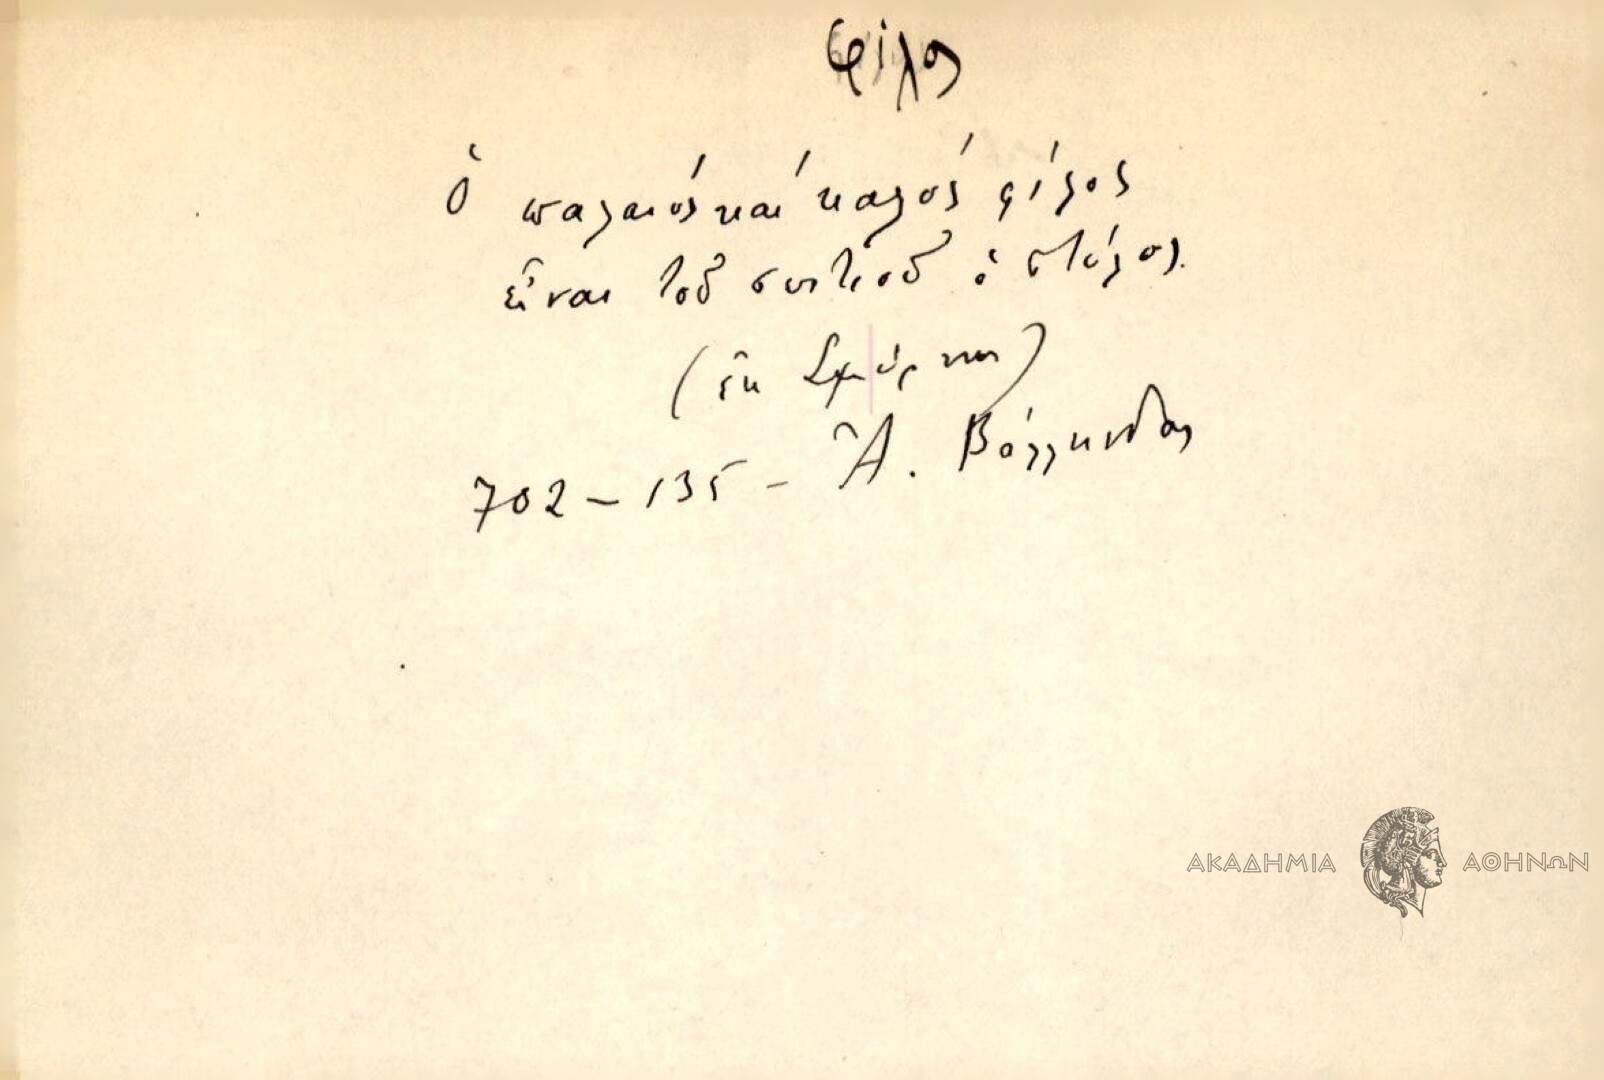 φίλος
Ὁ παλαιός καί καλός φίλος
εἶναι τοῦ σπιτιοῦ ὁ στύλος.
(ἐκ Σμύρνης)
702 - 135 - Ἀ. Βάλληνδας
ΑΚΑΔΗΜΙΑ ΑΘΗΝΩΝ